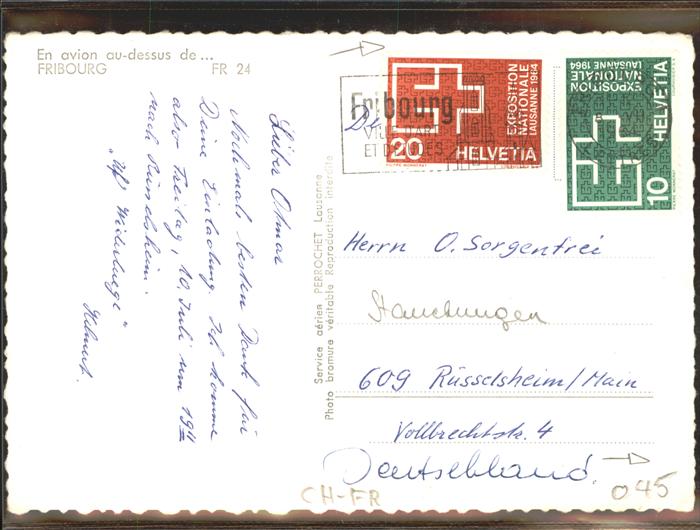 En avion au-dessus de ...
FRIBOURG FR 24
Lieber Otmar
Nochmals besten Dank für
Deine Einladung. Ich komme
aber Freitag, 10. Juli um 19⁴⁴
nach Rüsselsheim.
"Uf Widerluege"
Helmut.
Service aérien PERROCHET Lausanne
Photo bromure véritable Reproduction interdite
Fribourg
VILLE D'ART
ET D'ETUDES
20 HELVETIA
EXPOSITION
NATIONALE
LAUSANNE 1964
10 HELVETIA
EXPOSITION
NATIONALE
LAUSANNE 1964
Herrn O. Sorgenfrei
Stauchungen
609 Rüsselsheim/Main
Vollbrechtstr. 4
Deutschland.
CH-FR
045